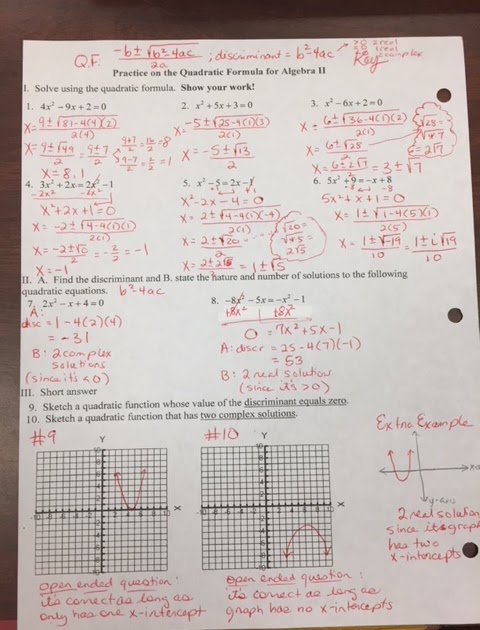 Q.F: -b±√b²-4ac / 2a ; discriminant = b²-4ac >0 2real =0 1real <0 complex
Key
Practice on the Quadratic Formula for Algebra II
I. Solve using the quadratic formula. Show your work!
1. 4x² - 9x + 2 = 0
x = 9 ± √81-4(4)(2) / 2(4)
x = 9 ± √49 / 2 = 9±7 / 2
9+7/2 = 16/2 = 8
9-7/2 = 2/2 = 1
x = 8, 1
2. x² + 5x + 3 = 0
x = -5 ± √25-4(1)(3) / 2(1)
x = -5 ± √13 / 2
3. x² - 6x + 2 = 0
x = 6 ± √36-4(1)(2) / 2(1)
x = 6 ± √28 / 2
x = 6 ± 2√7 / 2 = 3 ± √7
√28 =
√4·7
= 2√7
4. 3x² + 2x = 2x² - 1
-2x² -2x²
x² + 2x + 1 = 0
x = -2 ± √4-4(1)(1) / 2(1)
x = -2 ± √0 / 2 = -2/2 = -1
x = -1
5. x² - 5 = 2x - 1
x² - 2x - 4 = 0
x = 2 ± √4-4(1)(-4) / 2(1)
x = 2 ± √20 / 2
x = 2 ± 2√5 / 2 = 1 ± √5
√20 =
√4·5
2√5
6. 5x² + 9 = -x + 8
-8
5x² + x + 1 = 0
x = 1 ± √1-4(5)(1) / 2(5)
x = 1 ± √-19 / 10 = 1 ± i√19 / 10
II. A. Find the discriminant and B. state the nature and number of solutions to the following
quadratic equations. b²-4ac
7. 2x² - x + 4 = 0
A:
disc = 1 - 4(2)(4)
= -31
B: 2 complex
solutions
(since it's <0)
8. -8x² - 5x = -x² - 1
+8x² +8x²
0 = 7x² + 5x - 1
A: discr = 25 - 4(7)(-1)
= 53
B: 2 real solutions
(since it's >0)
III. Short answer
9. Sketch a quadratic function whose value of the discriminant equals zero.
10. Sketch a quadratic function that has two complex solutions.
#9
Y
X
-10 -8 -6 -4 -2
open ended question:
it's correct as long as
only has one x-intercept
#10
Y
X
open ended question:
it's correct as long as
graph has no x-intercepts
Extra Example
y-axis
2 real solution
since its graph
has two
x-intercepts